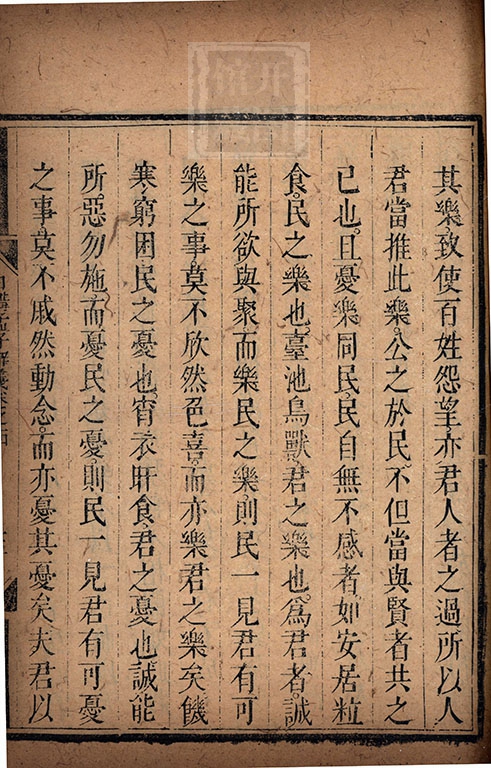 其樂致使百姓怨望亦君人者之過所以人
君當推此樂公之於民不但當與賢者共之
已也且憂樂同民民自無不感者如安居粒
食民之樂也臺池鳥獸君之樂也爲君者誠
能所欲與聚而樂民之樂則民一見君有可
樂之事莫不欣然色喜而亦樂君之樂矣饑
寒窮困民之憂也宵衣旰食君之憂也誠能
所惡勿施而憂民之憂則民一見君有可憂
之事莫不戚然動念而亦憂其憂矣夫君以